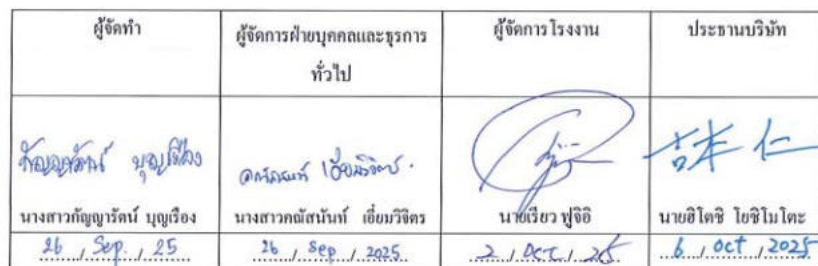 ผู้จัดทำ
ผู้จัดการฝ่ายบุคคลและธุรการ
ทั่วไป
ผู้จัดการโรงงาน
ประธานบริษัท
กัญญารัตน์ บุญเรือง
คณัสนันท์ เอี่ยมวิจิตร
吉本 仁
นางสาวกัญญารัตน์ บุญเรือง
นางสาวคณัสนันท์ เอี่ยมวิจิตร
นายเรียว ฟูจิอิ
นายฮิโตชิ โยชิโมโตะ
26 / Sep. / 25
26 / Sep / 2025
2 / Oct / 25
6 / Oct / 2025